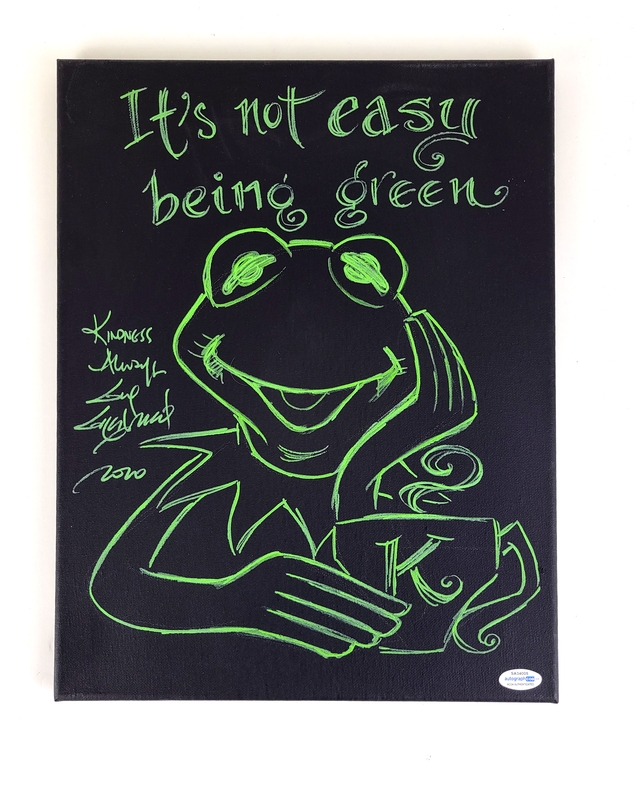 It's not easy
being green
Kindness
Always
2020
K
autograph